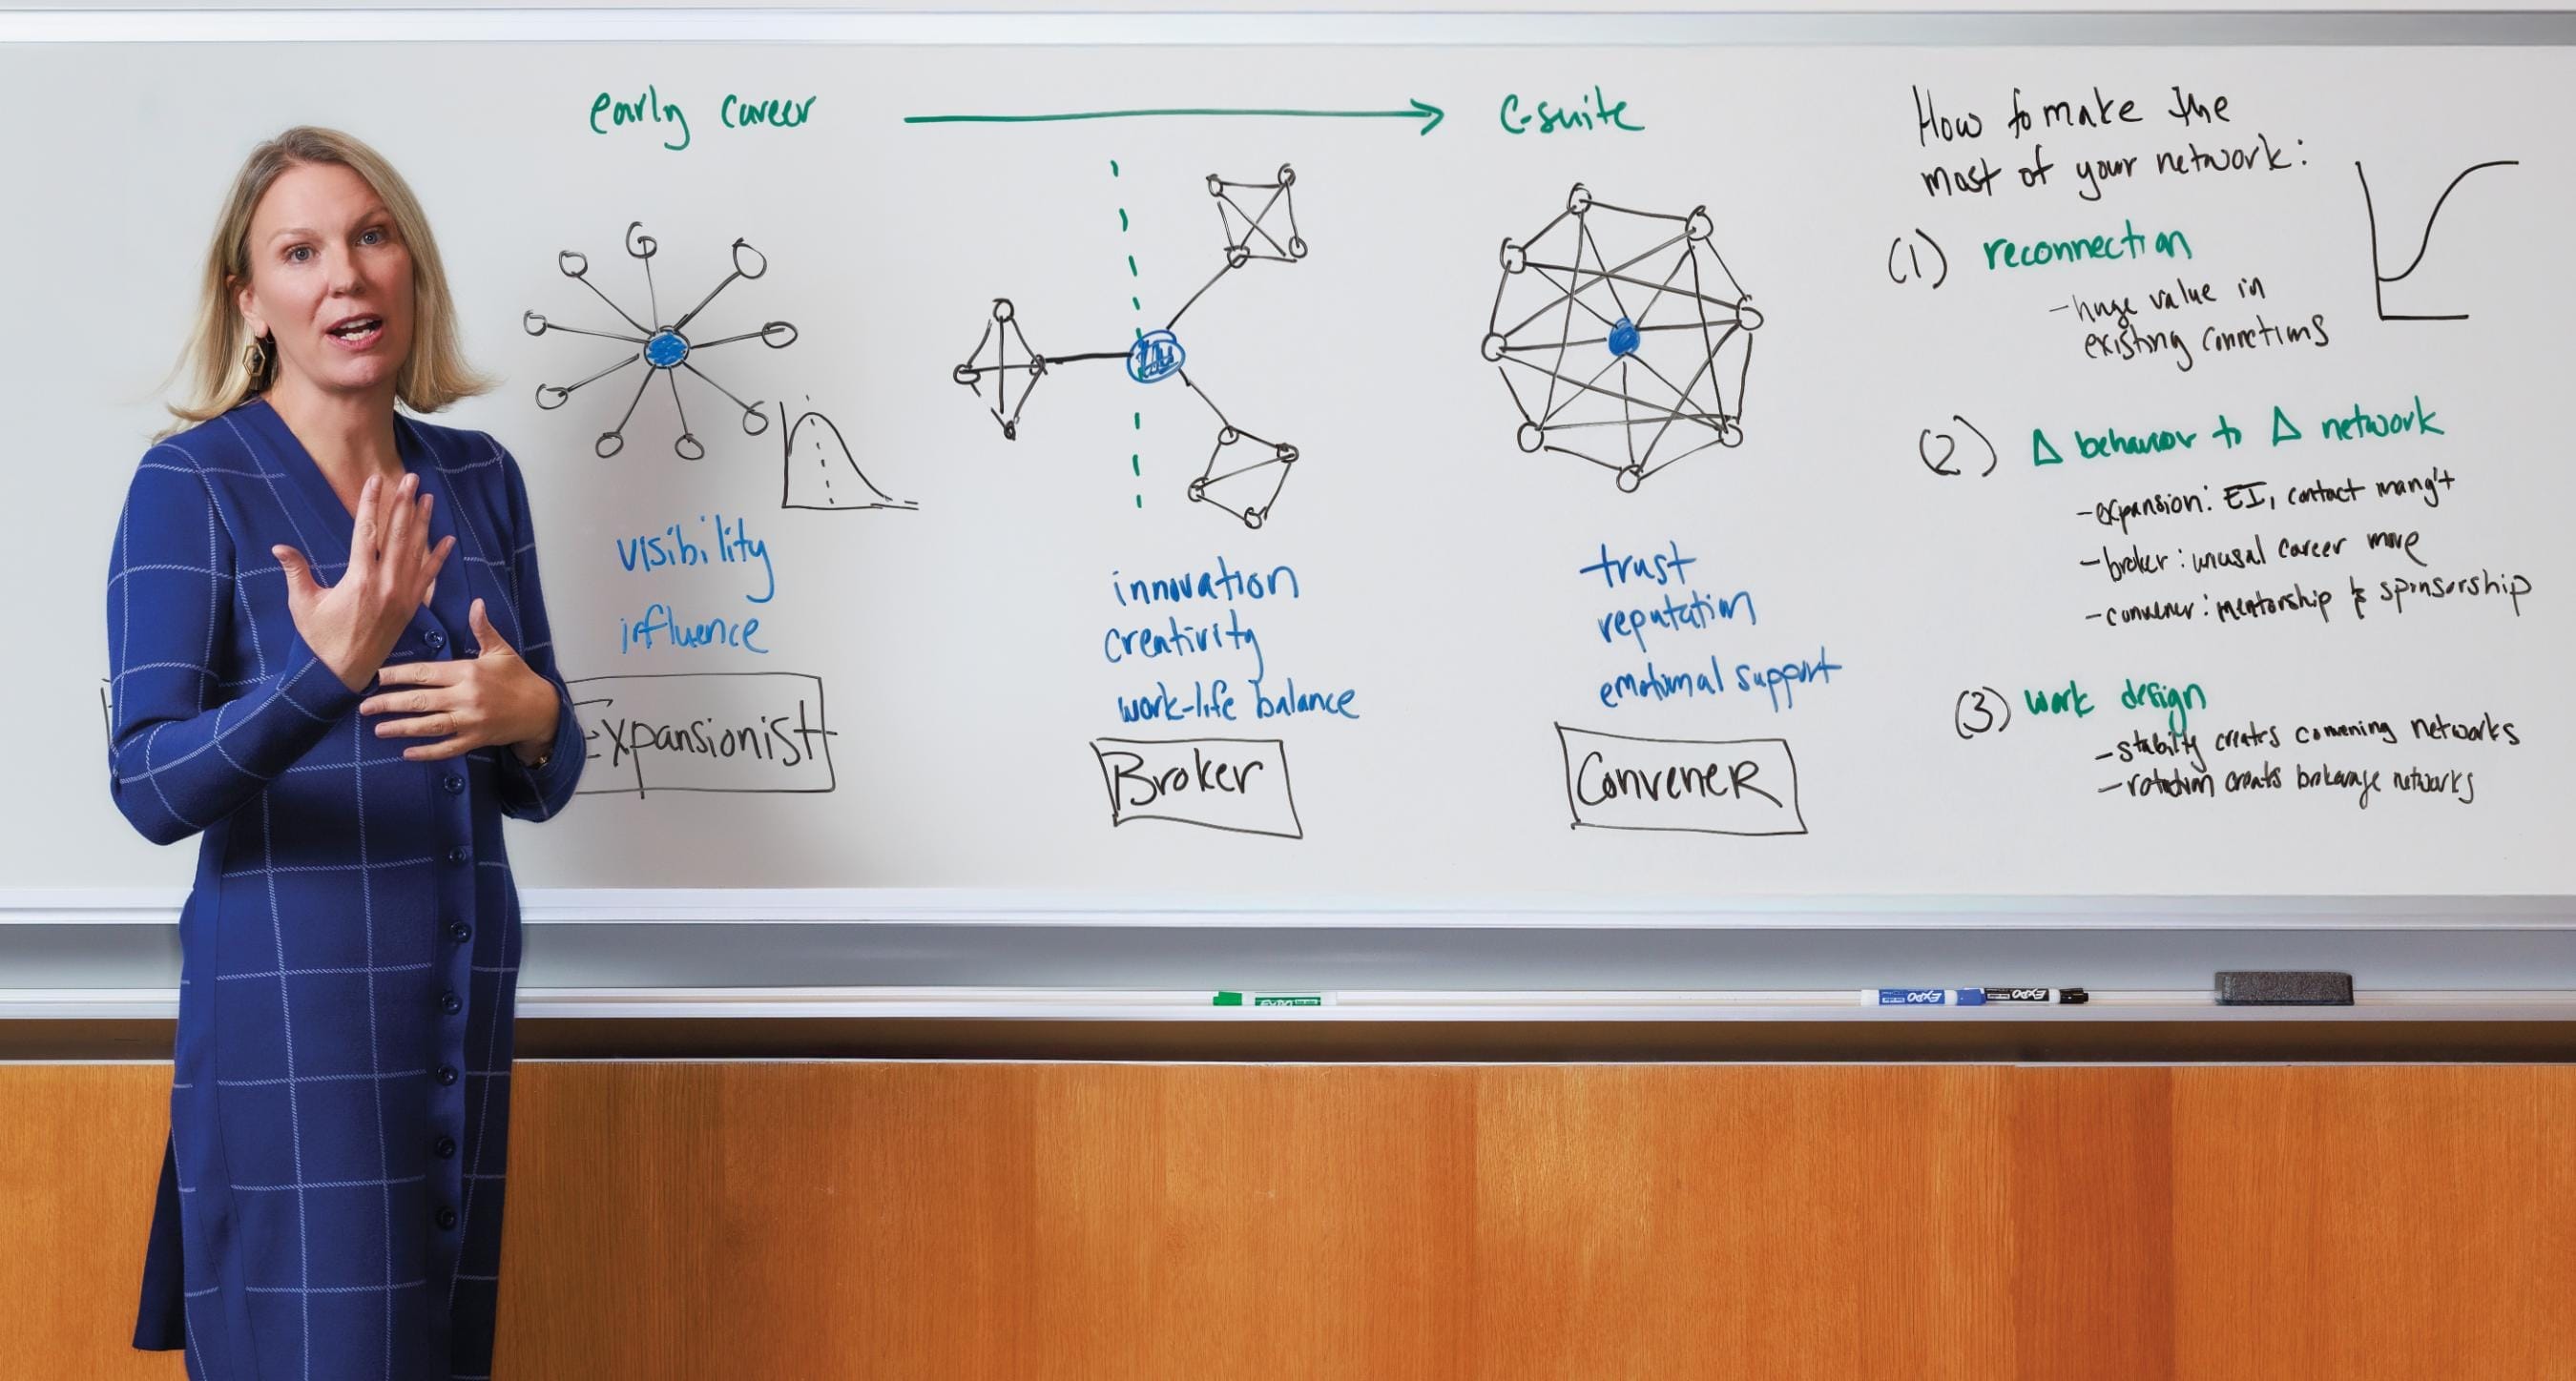 early career
C-suite
visibility
influence
Expansionist
innovation
creativity
work-life balance
Broker
trust
reputation
emotional support
Convener
How to make the
most of your network:
(1) reconnection
-huge value in
existing connections
(2) Δ behavior to Δ network
-expansion: EI, contact mang't
-broker: unusal career move
-convener: mentorship & sponsorship
(3) work design
-stability creates convening networks
-rotation creates brokerage networks
EXPO
EXPO
EXPO